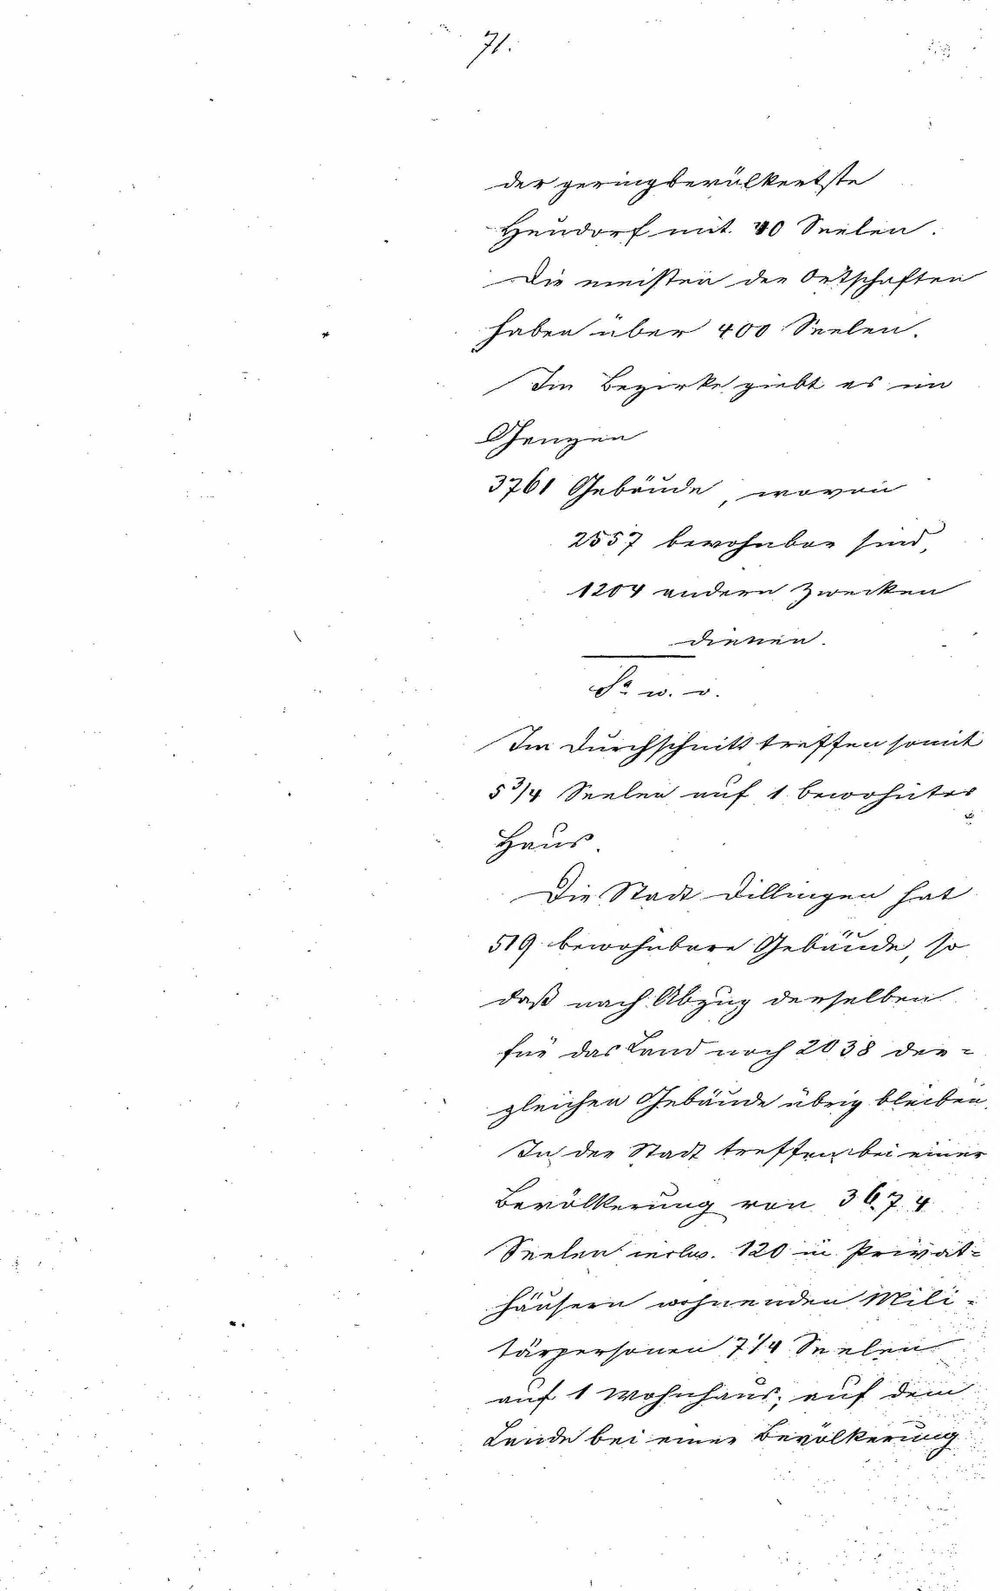 71.
der geringbevölkertste
Heudorf mit 40 Seelen.
Die meisten der Ortschaften
haben über 400 Seelen.
Im Bezirke giebt es im
Ganzen
3761 Gebäude, wovon
2557 bewohnbar sind,
1204 andern Zwecken
dienen.
Sa. w. o.
Im Durchschnitt treffen somit
5 3/4 Seelen auf 1 bewohntes
Haus.
Die Stadt Dillingen hat
519 bewohnbare Gebäude, so
daß nach Abzug derselben
für das Land noch 2038 der-
gleichen Gebäude übrig bleiben.
In der Stadt treffen bei einer
Bevölkerung von 3674
Seelen incls. 120 in Privat-
häusern wohnenden Mili-
tärpersonen 7 1/4 Seelen
auf 1 Wohnhaus; auf dem
Lande bei einer Bevölkerung